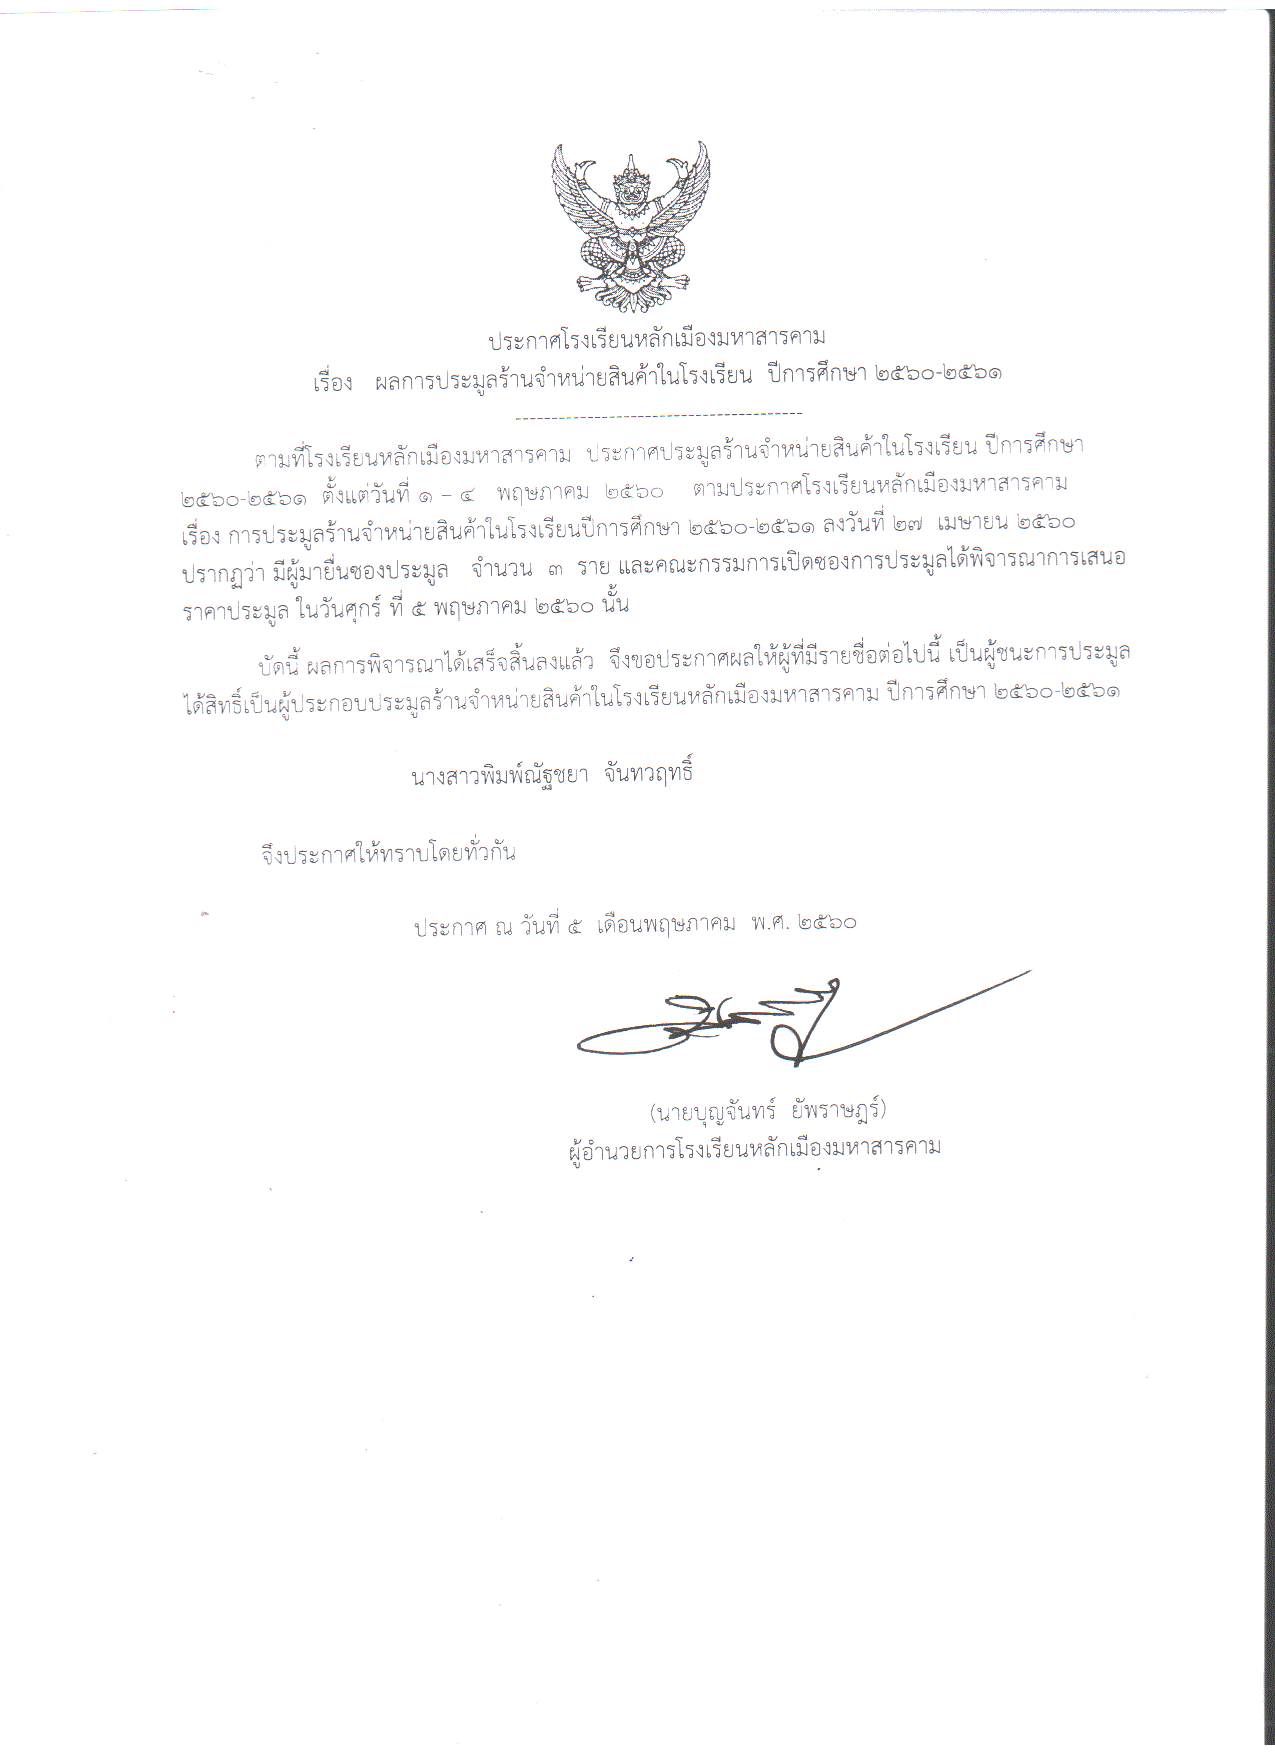 ประกาศโรงเรียนหลักเมืองมหาสารคาม
เรื่อง ผลการประมูลร้านจำหน่ายสินค้าในโรงเรียน ปีการศึกษา ๒๕๖๐-๒๕๖๑
----------------------------------------
ตามที่โรงเรียนหลักเมืองมหาสารคาม ประกาศประมูลร้านจำหน่ายสินค้าในโรงเรียน ปีการศึกษา
๒๕๖๐-๒๕๖๑ ตั้งแต่วันที่ ๑ – ๔ พฤษภาคม ๒๕๖๐ ตามประกาศโรงเรียนหลักเมืองมหาสารคาม
เรื่อง การประมูลร้านจำหน่ายสินค้าในโรงเรียนปีการศึกษา ๒๕๖๐-๒๕๖๑ ลงวันที่ ๒๗ เมษายน ๒๕๖๐
ปรากฏว่า มีผู้มายื่นซองประมูล จำนวน ๓ ราย และคณะกรรมการเปิดซองการประมูลได้พิจารณาการเสนอ
ราคาประมูล ในวันศุกร์ ที่ ๕ พฤษภาคม ๒๕๖๐ นั้น
บัดนี้ ผลการพิจารณาได้เสร็จสิ้นลงแล้ว จึงขอประกาศผลให้ผู้ที่มีรายชื่อต่อไปนี้ เป็นผู้ชนะการประมูล
ได้สิทธิ์เป็นผู้ประกอบประมูลร้านจำหน่ายสินค้าในโรงเรียนหลักเมืองมหาสารคาม ปีการศึกษา ๒๕๖๐-๒๕๖๑
นางสาวพิมพ์ณัฐชยา จันทวฤทธิ์
จึงประกาศให้ทราบโดยทั่วกัน
ประกาศ ณ วันที่ ๕ เดือนพฤษภาคม พ.ศ. ๒๕๖๐
(นายบุญจันทร์ ยัพราษฎร์)
ผู้อำนวยการโรงเรียนหลักเมืองมหาสารคาม